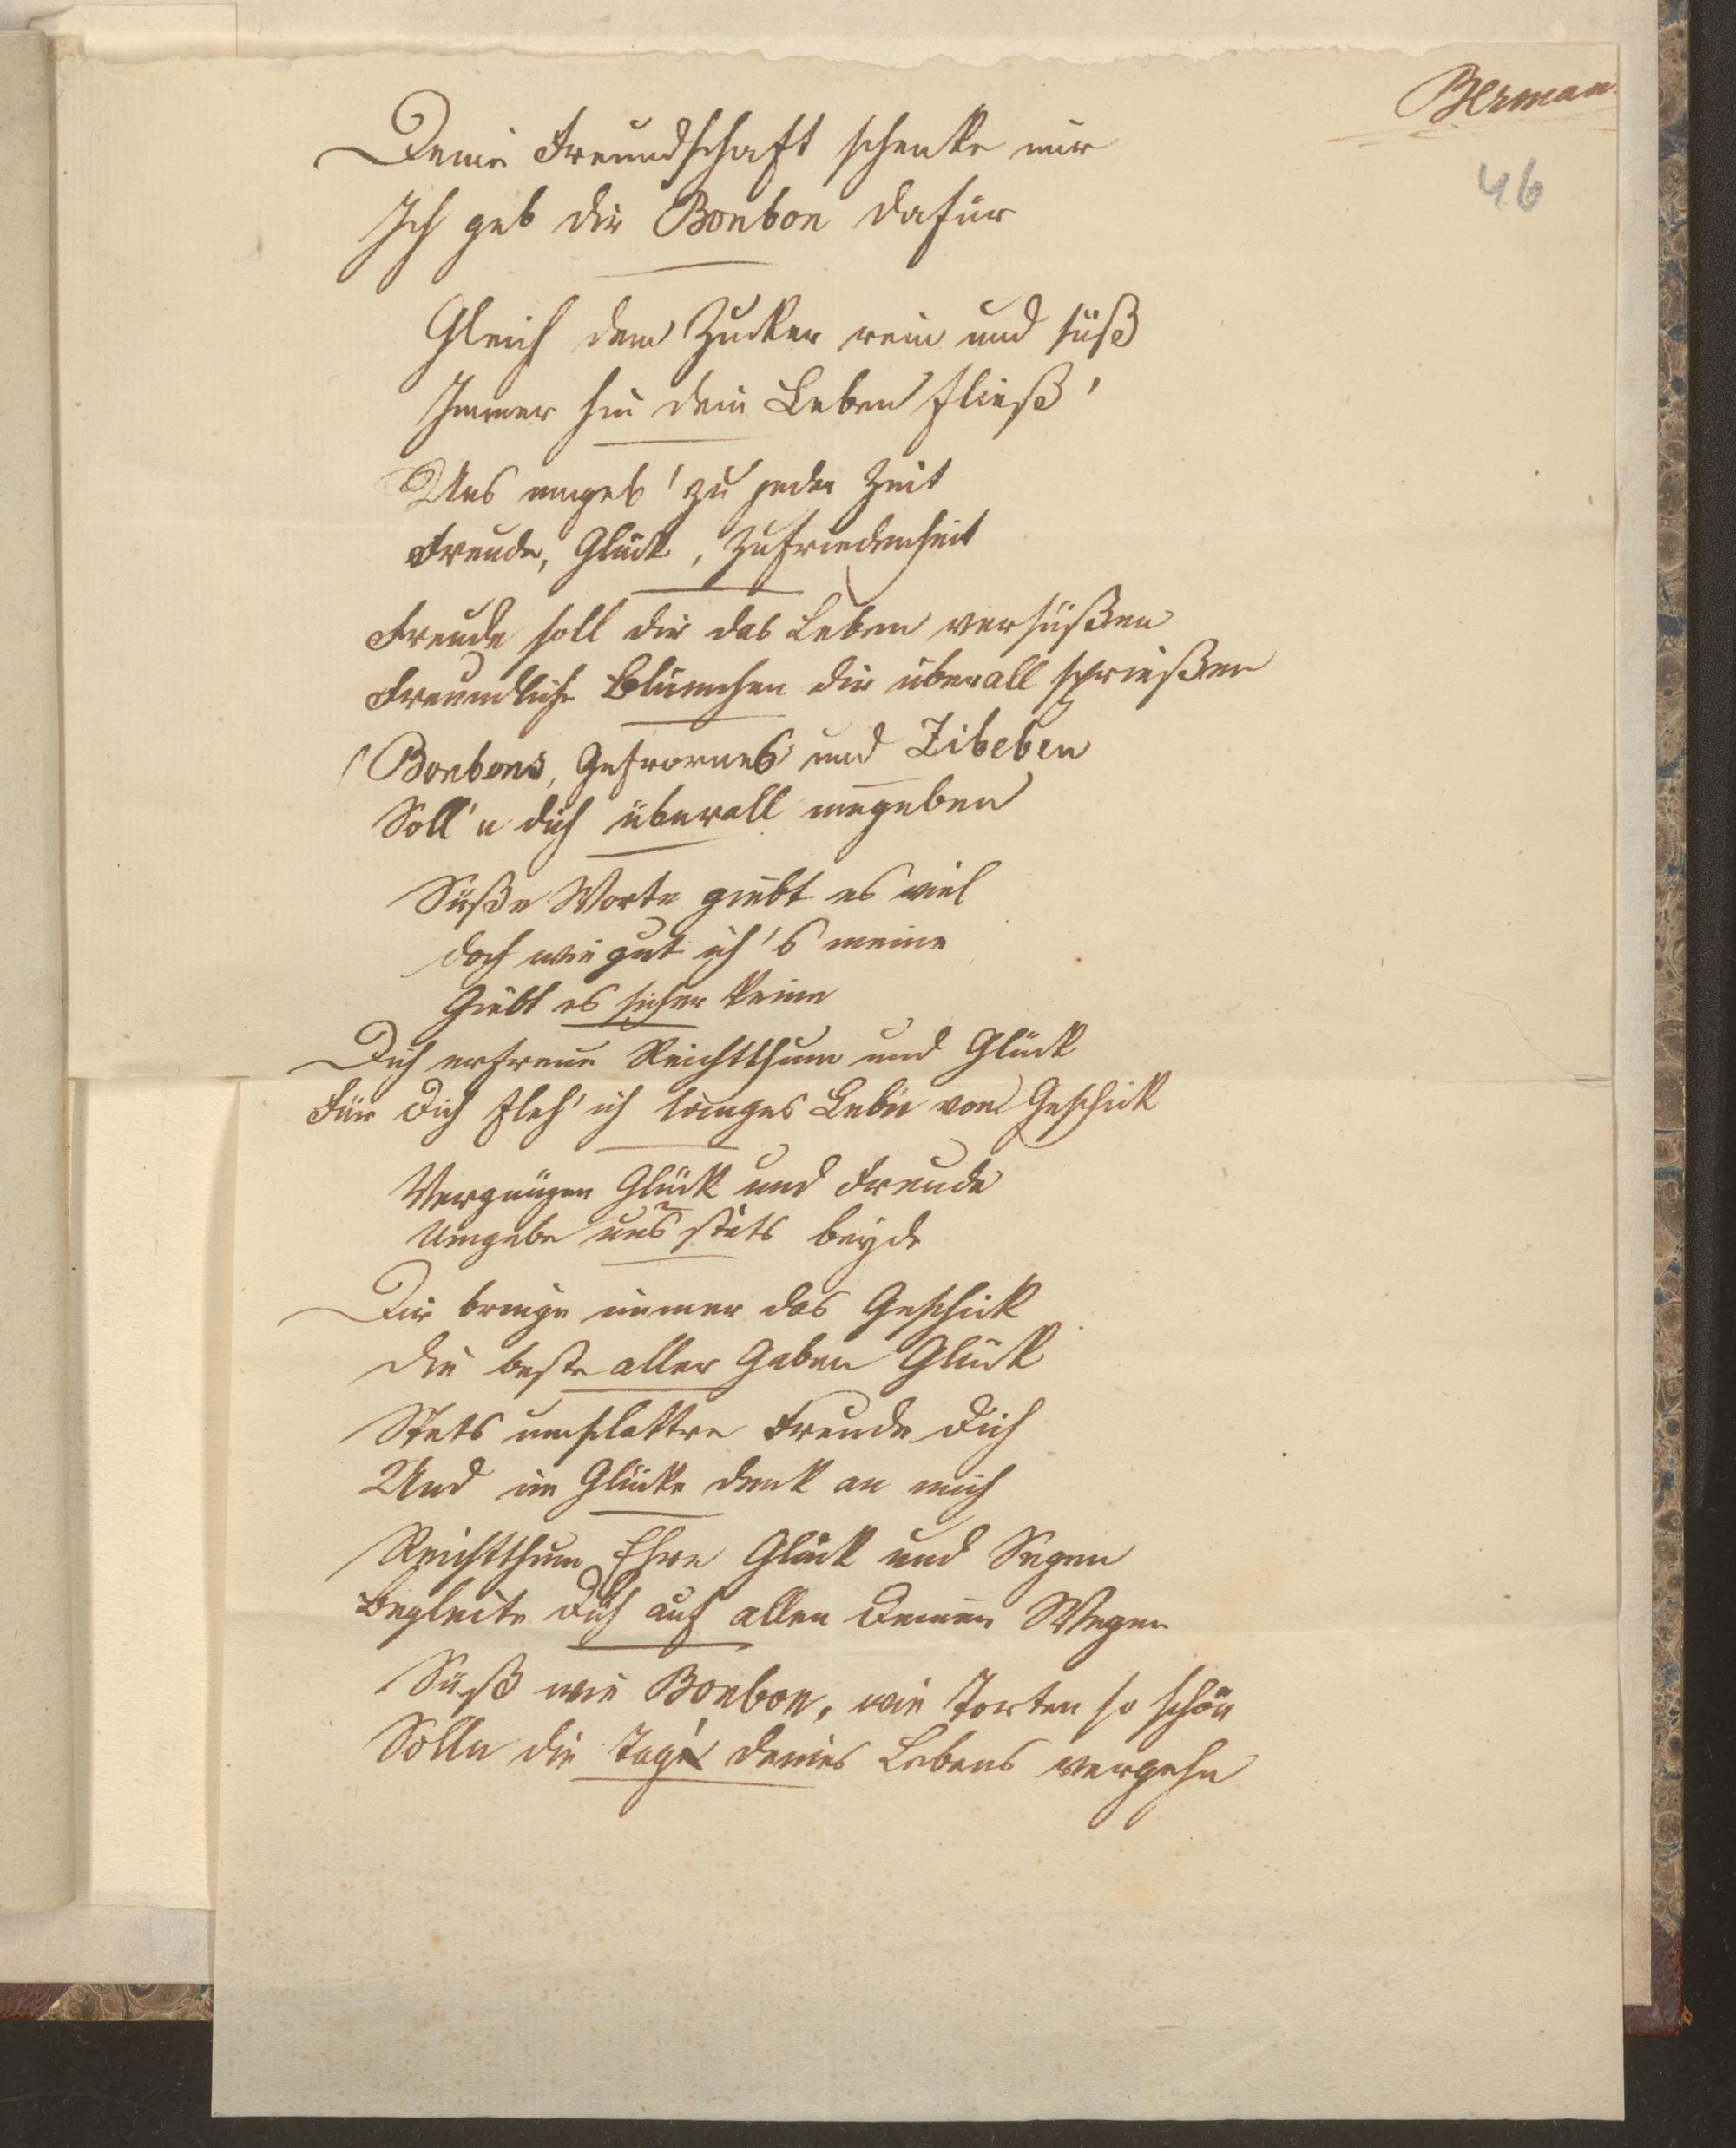 Berman
46
Deine Freundschaft schenke mir
Ich geb dir Bonbon dafür
Gleich dem Zucker rein und süß
Immer hin dein Leben fließ'
Uns umgeb' zu jeder Zeit
Freude, Glück, Zufriedenheit
Freude soll dir das Leben versüßen
Freundliche Blümchen dir überall sprießen
Bonbons, Gefrornes und Zibeben
Soll'n dich überall umgeben
Süße Worte giebt es viel
doch wie gut ich's meine
Giebt es sicher keine
Dich erfreue Reichtthum und Glück
Für Dich fleh' ich langes Leben vom Geschick
Vergnügen Glück und Freude
Umgebe uns stets beyde
Dir bringe immer das Geschick
die beste aller Gaben Glück
Stets umflattre Freude Dich
Und im Glücke denk an mich
Reichtthum Ehre Glück und Segen
Begleite Dich auf allen Deinen Wegen
Süß wie Bonbon, wie Torten so schön
Solln die Tage deines Lebens vergehn